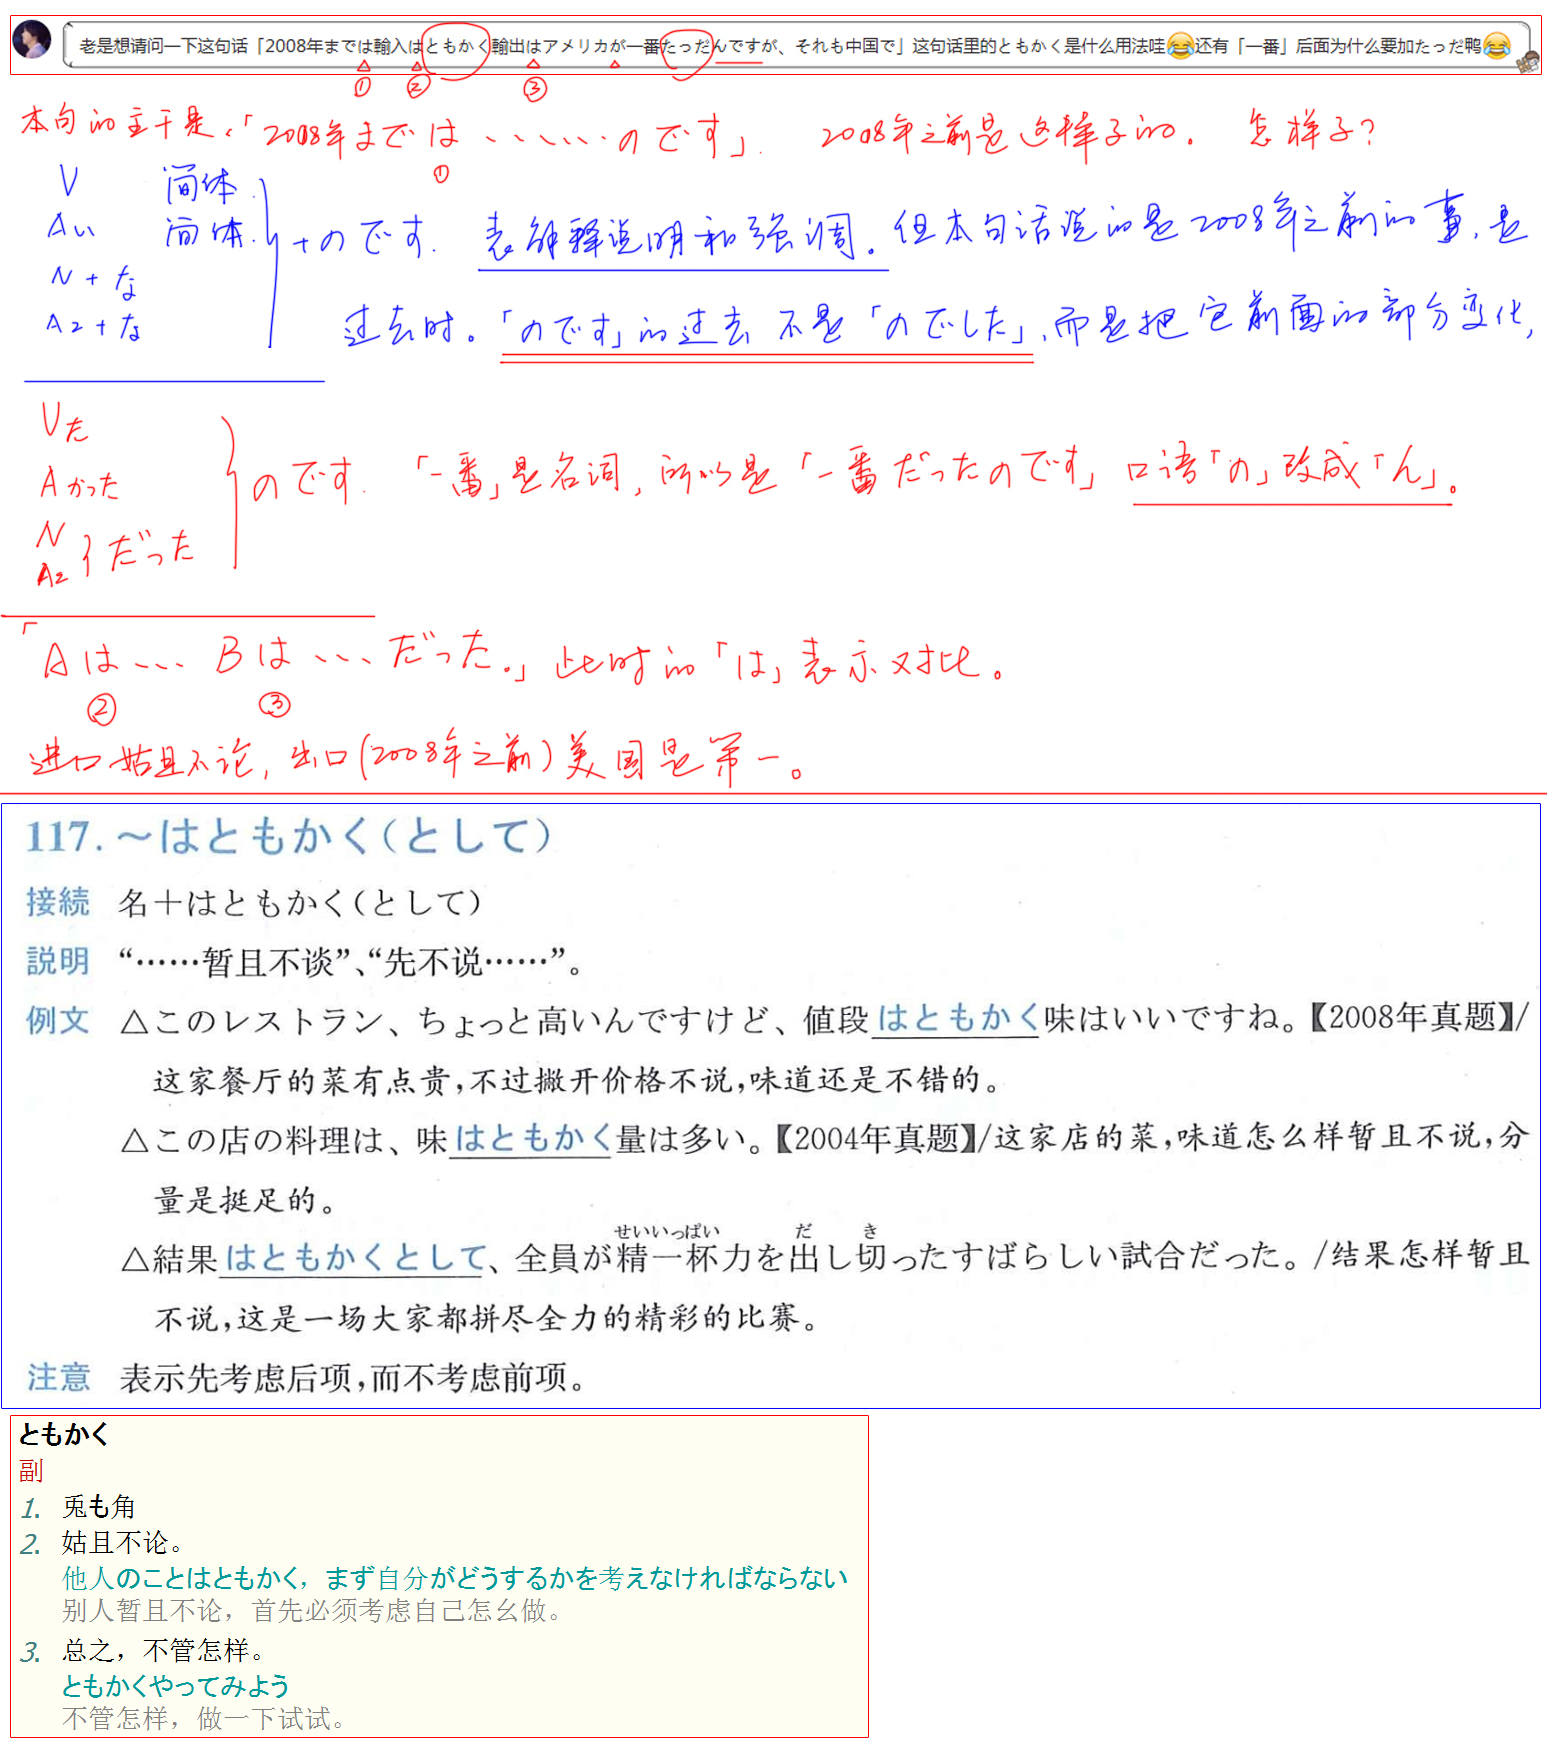 老是想请问一下这句话「2008年までは輸入はともかく輸出はアメリカが一番たっだんですが、それも中国で」这句话里的ともかく是什么用法哇😂还有「一番」后面为什么要加たっだ鸭😂
① ② ③
本句的主干是、「2008年までは、、、、、のです」. 2008年之前是这样子的。怎样子?
①
V 简体
Aい 简体
N+な
A2+な
+のです. 表解释说明和强调。但本句话说的是2008年之前的事,是
过去时。「のです」的过去不是「のでした」,而是把它前面的部分变化,
Vた
Aかった
N
A2 }だった
のです. 「一番」是名词,所以是「一番だったのです」口语「の」改成「ん」。
「Aは、、、Bは、、、だった。」此时的「は」表示对比。
② ③
进口姑且不论,出口(2008年之前)美国是第一。
117. ～はともかく(として)
接続 名＋はともかく(として)
説明 “……暂且不谈”、“先不说……”。
例文 △このレストラン、ちょっと高いんですけど、値段はともかく味はいいですね。【2008年真题】/
这家餐厅的菜有点贵,不过撇开价格不说,味道还是不错的。
△この店の料理は、味はともかく量は多い。【2004年真题】/这家店的菜,味道怎么样暂且不说,分
量是挺足的。
せいいっぱい だ き
△結果はともかくとして、全員が精一杯力を出し切ったすばらしい試合だった。/结果怎样暂且
不说,这是一场大家都拼尽全力的精彩的比赛。
注意 表示先考虑后项,而不考虑前项。
ともかく
副
1. 兎も角
2. 姑且不论。
他人のことはともかく，まず自分がどうするかを考えなければならない
别人暂且不论，首先必须考虑自己怎么做。
3. 总之，不管怎样。
ともかくやってみよう
不管怎样，做一下试试。